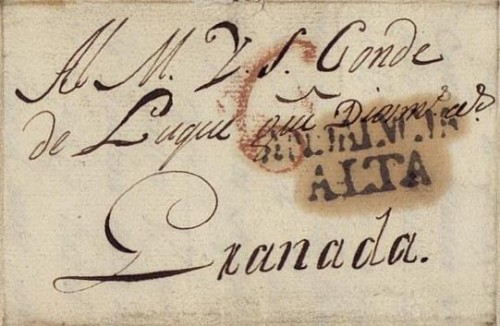 Al M. Y. S. Conde
de Luque que Dios m.s a.s
ALTA
Granada.